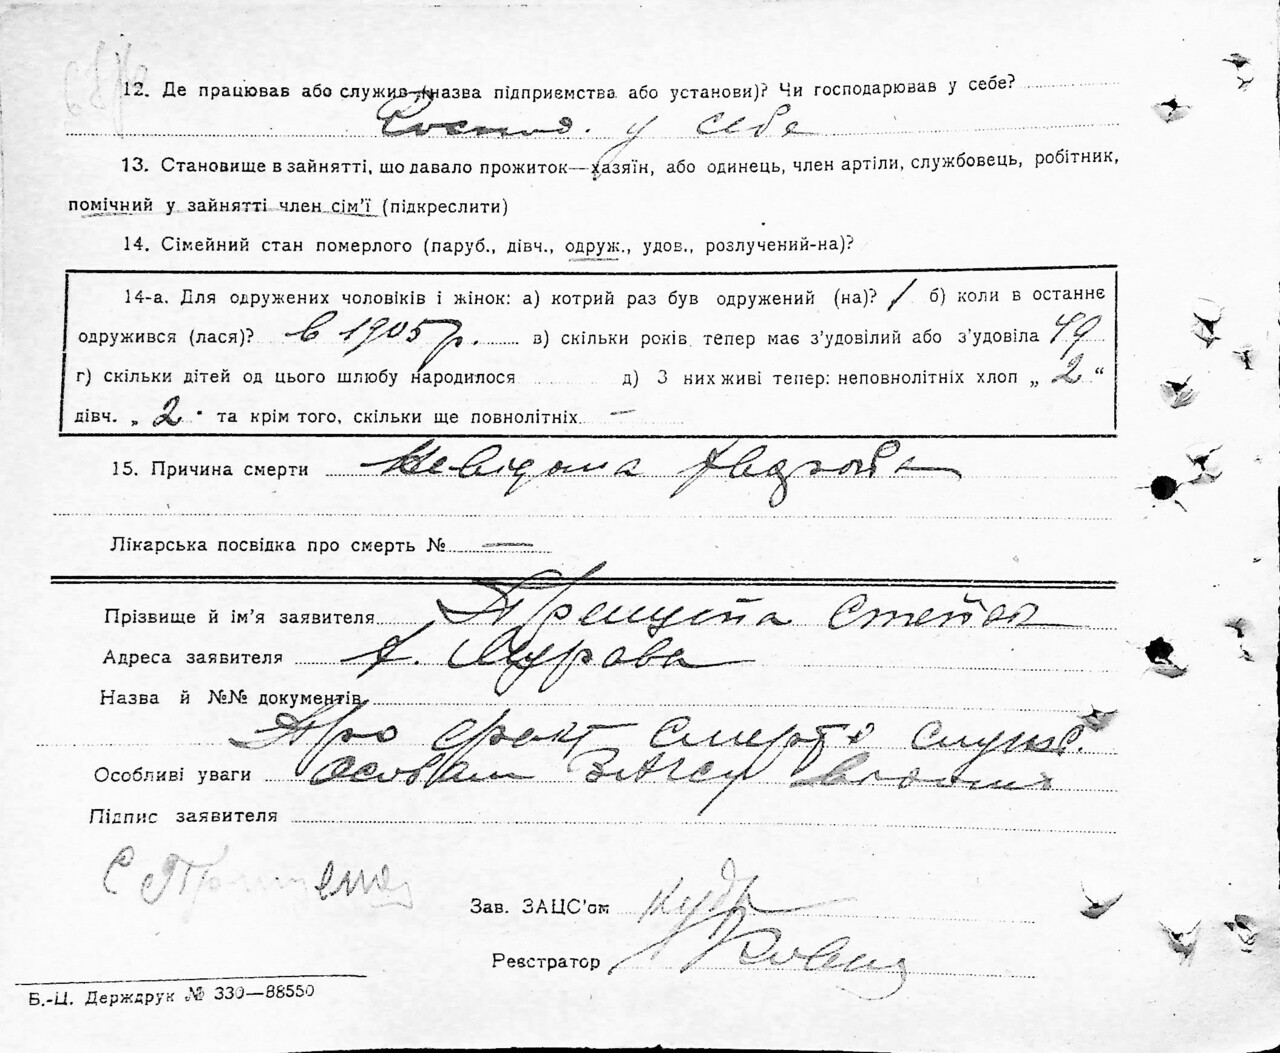 12. Де працював або служив (назва підприємства або установи)? Чи господарював у себе?
Господ. у себе
13. Становище в зайнятті, що давало прожиток—хазяїн, або одинець, член артілі, службовець, робітник,
помічний у зайнятті член сім'ї (підкреслити)
14. Сімейний стан померлого (паруб., дівч., одруж., удов., розлучений-на)?
14-а. Для одружених чоловіків і жінок: а) котрий раз був одружений (на)? 1 б) коли в останнє
одружився (лася)? в 1905 р. в) скільки років тепер має з'удовілий або з'удовіла 49
г) скільки дітей од цього шлюбу народилося д) З них живі тепер: неповнолітніх хлоп „ 2 "
дівч. „ 2 " та крім того, скільки ще повнолітніх —
15. Причина смерти Невідома
Лікарська посвідка про смерть № —
Прізвище й ім'я заявителя Степан
Адреса заявителя
Назва й №№ документів
Про факт смерти служб.
Особливі уваги особам ЗАГСу відомо
Підпис заявителя
Зав. ЗАЦС'ом
Реєстратор
Б.-Ц. Держдрук № 330—88550